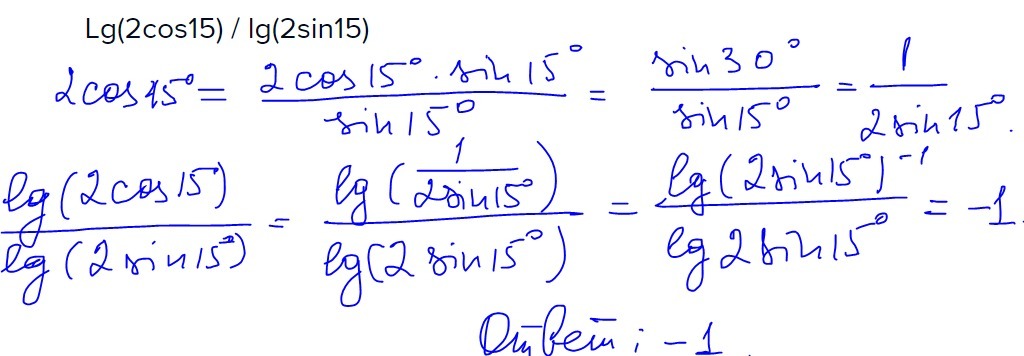 Lg(2cos15) / lg(2sin15)
2cos15° = 2cos15°·sin15° / sin15° = sin30° / sin15° = 1 / 2sin15°.
lg(2cos15) / lg(2sin15°) = lg(1 / 2sin15°) / lg(2sin15°) = lg(2sin15°)⁻¹ / lg2sin15° = -1.
Ответ: -1.